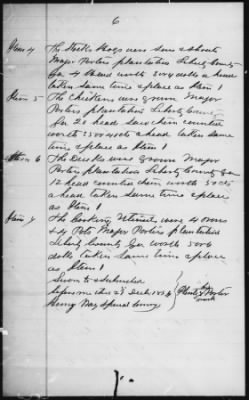 6
Item 4 The Stock Hogs were Sows & Shoats
Major Porters plantation Liberty County
Ga 4 head worth 3 or 4 dolls a head
taken Same time & place as Item 1
Item 5 The Chickens was grown Major
Porters plantation Liberty County
Ga 25 head Saw them counted
worth 25 cts a head taken same
time & place as Item 1
Item 6 The Ducks was grown Major
Porters plantation Liberty County Ga
12 head counted them worth 50 cts
a head taken same time & place
as Item 1
Item 7 The Cooking Utensil were 4 ovens
& 4 Pots Major Porters plantation
Liberty County Ga worth 5 or 6
dolls taken Same time & place
as Item 1
Sworn to & Subscribed
before me this 2 Dec
Henry Way Special
his
Porter
mark